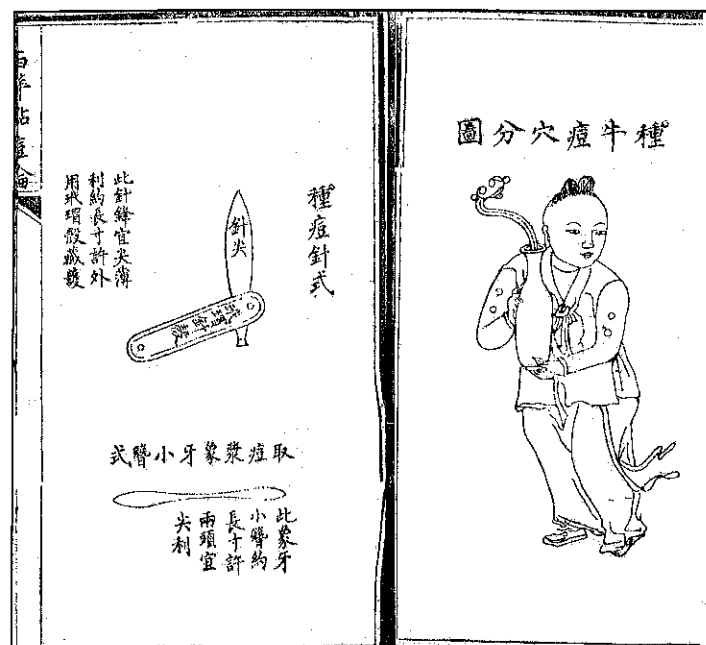 種牛痘穴分圖
種痘針式
針尖
此針鋒宜尖薄
利約長寸許外
用玳瑁殼藏護
取痘漿象牙小簪式
此象牙
小簪約
長寸許
兩頭宜
尖利